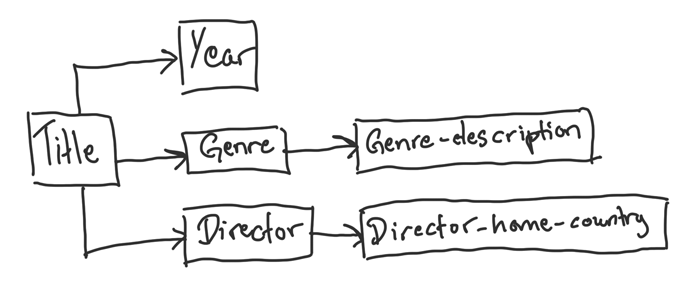 Year
Title
Genre
Genre-description
Director
Director-home-country